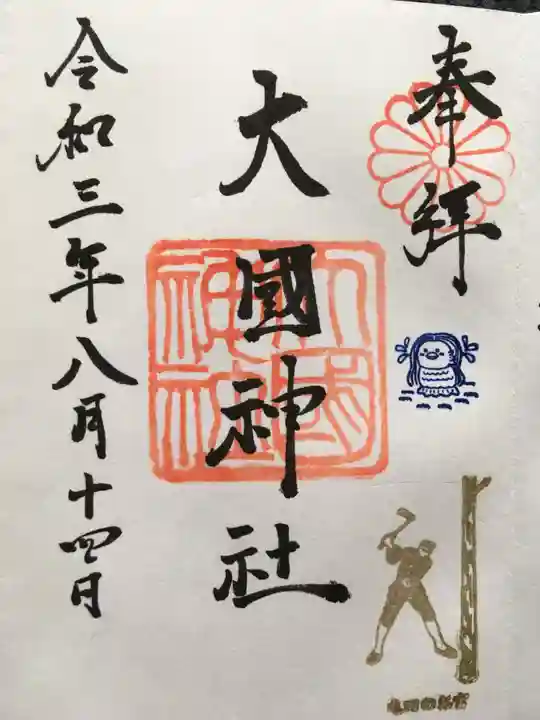 奉拜
大國神社
令和三年八月十四日